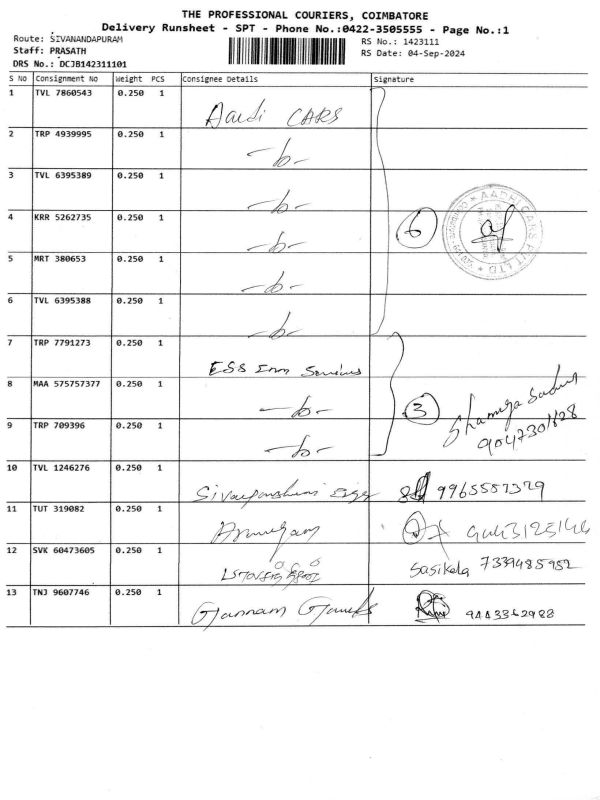 THE PROFESSIONAL COURIERS, COIMBATORE
Delivery Runsheet - SPT - Phone No.:0422-3505555 - Page No.:1
Route: SIVANANDAPURAM
RS No.: 1423111
Staff: PRASATH
RS Date: 04-Sep-2024
DRS No.: DCJB142311101
S No Consignment No Weight PCS Consignee Details Signature
1 TVL 7860543 0.250 1 Aadi CARS
2 TRP 4939995 0.250 1
3 TVL 6395389 0.250 1
4 KRR 5262735 0.250 1 6
AADHI CARS PVT LTD
5 MRT 380653 0.250 1
6 TVL 6395388 0.250 1
7 TRP 7791273 0.250 1 ESS
8 MAA 575757377 0.250 1 3
9 TRP 709396 0.250 1 9047301828
10 TVL 1246276 0.250 1 9965557379
11 TUT 319082 0.250 1 Arumugam
12 SVK 60473605 0.250 1 Sasikala 7339485952
13 TNJ 9607746 0.250 1 9443362988